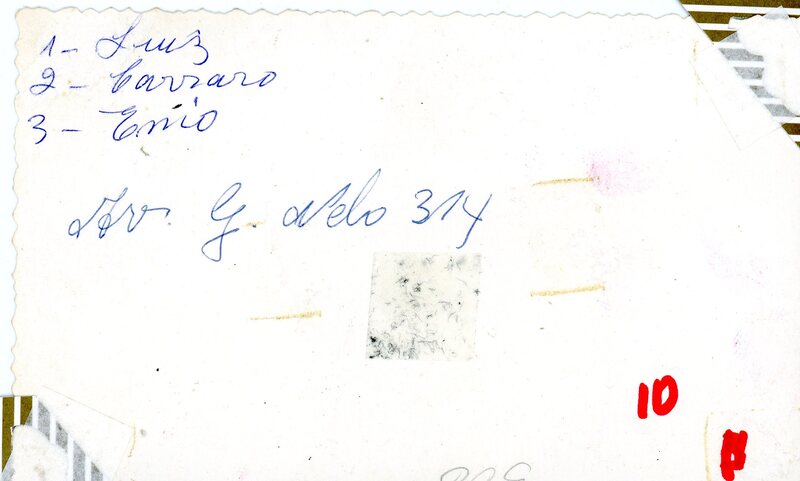 1- Luiz
2- Carraro
3- Enio
Av. G. 314
10